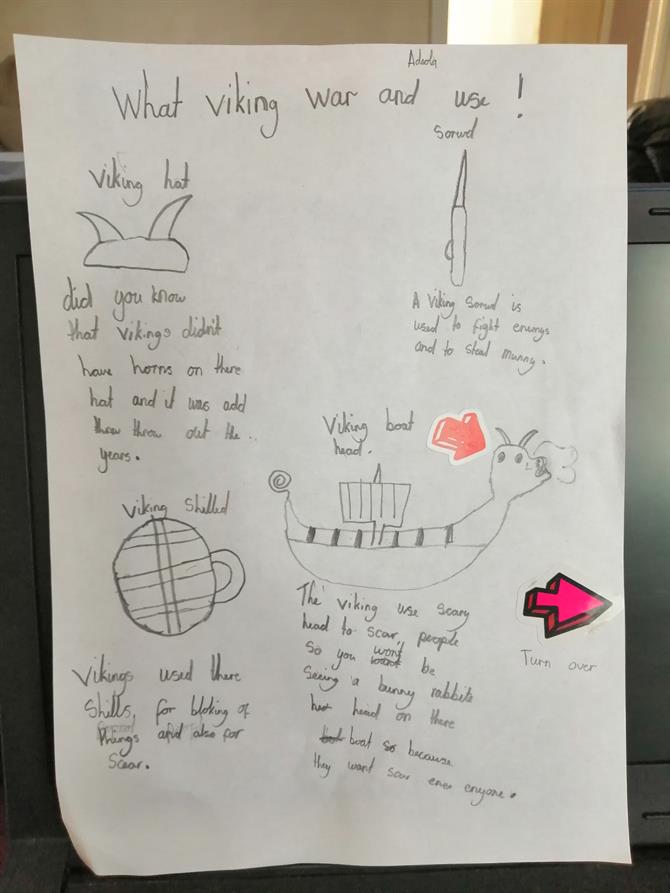 Adeola
What viking war and use !
Viking hat
did you know
that vikings didn't
have horns on there
hat and it was add
throw out the
years.
Sorwd
A Viking Sorwd is
used to fight enemys
and to steal munny.
Viking boat
head.
The viking use scary
head to scar people
so you wont be
Seeing a bunny rabbits
head on there
boat because
they want scar
Viking Shilled
Vikings used there
Shills, for bloking of
things and also for
Scear.
Turn over